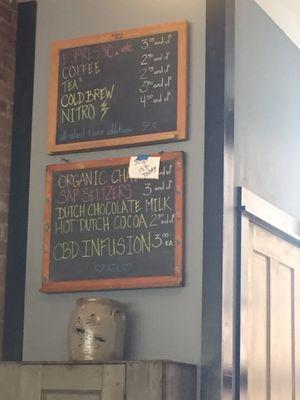 ESPRESSO, etc 3.25 and up
COFFEE 2.50 and up
TEA 2.75 and up
COLD BREW 3.50 and up
NITRO 4.50 and up
all natural flavor additions 50¢
ORGANIC CHAI and up
SAP SELTZERS 3 and up
DUTCH CHOCOLATE MILK
HOT DUTCH COCOA 2.75 and up
CBD INFUSION 3.00 EA